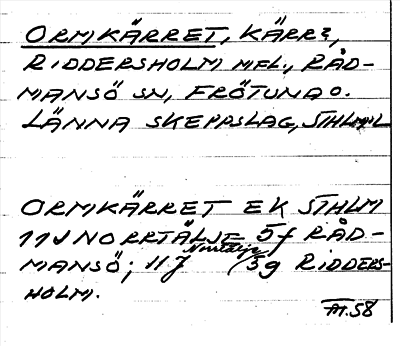 ORMKÄRRET, KÄRR?,
RIDDERSHOLM MFL., RÅD-
MANSÖ SN, FRÖTUNA O.
LÄNNA SKEPPSLAG, STHLMS L
ORMKÄRRET EK STHLM
11J NORRTÄLJE 5f RÅD-
MANSÖ; 11J Norrtälje 5g RIDDERS-
HOLM.
58